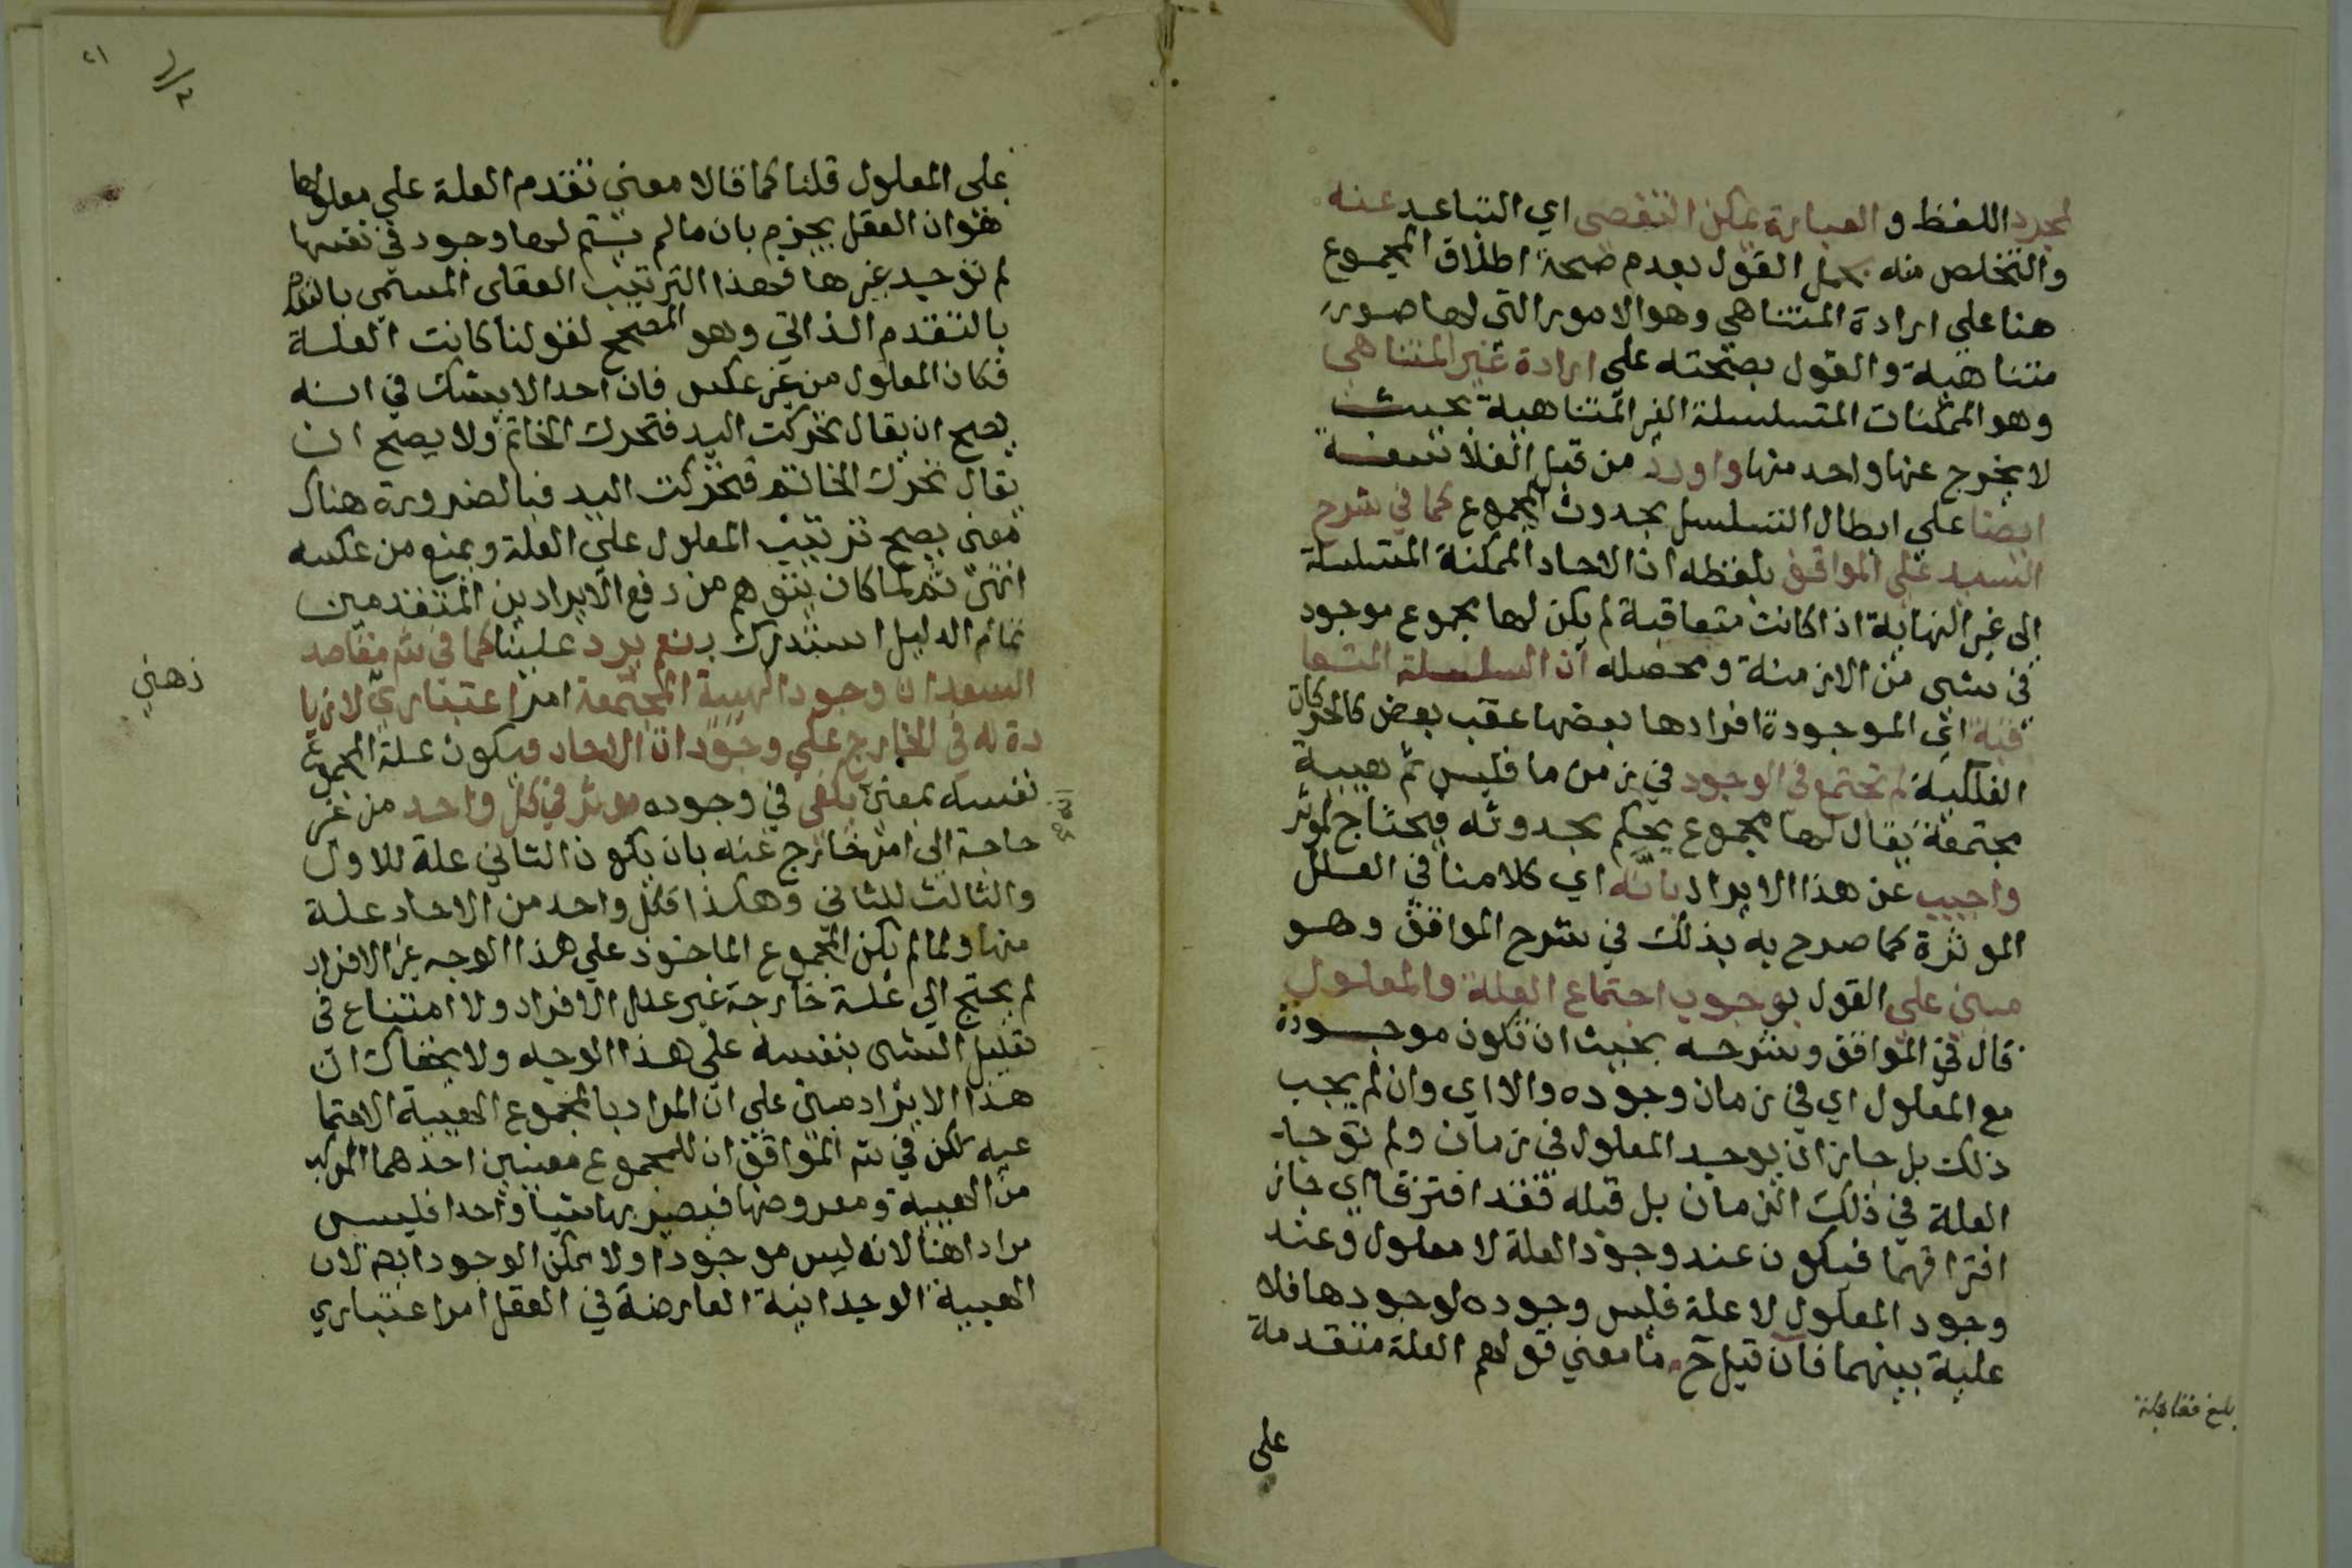 لمجرد اللفظ و العبارة يمكن التفصى اي التباعد عنه
والتخلص منه بحمل القول بعدم صحة اطلاق المجموع
هنا على ارادة المتناهي وهو الامور التي لها صور
متناهية والقول بصحته على ارادة غير المتناهى
وهو الممكنات المتسلسلة الغير المتناهية بحيث
لا يخرج عنها واحد منها واورد من قبل الفلاسفة
ايضا على ابطال التسلسل بحدوث المجموع كما في شرح
السيد على المواقف بلفظه ان الاحاد الممكنة المتسلسلة
الى غير النهاية اذا كانت متعاقبة لم يكن لها مجموع موجود
في شى من الازمنة ومحصله ان السلسلة المتعا
قبة اى الموجودة افرادها بعضها عقب بعض كالحركات
الفلكية لم تجتمع في الوجود في زمن ما فليس ثم هيية
مجتمعة يقال لها مجموع يحكم بحدوثه فيحتاج لموثر
واجيب عن هذا الايراد بانه اي كلامنا في العلل
الموثرة كما صرح به بذلك في شرح المواقف وهو
مبنى على القول بوجوب اجتماع العلة والمعلول
قال في المواقف وشرحه بحيث ان تكون موجودة
مع المعلول اي في زمان وجوده والا اي وان لم يجب
ذلك بل جاز ان يوجد المعلول في زمان ولم توجد
العلة في ذلك الزمان بل قبله فقد افترقا اي جاز
افتراقهما فيكون عند وجود العلة لا معلول وعند
وجود المعلول لا علة فليس وجوده لوجودها فلا
علية بينهما فان قيل ح ما معنى قولهم العلة متقدمة
على
بلغ مقابلة
٢١
على المعلول قلنا كما قالا معنى تقدم العلة على معلولها
هو ان العقل يجزم بان ما لم يتم لها وجود في نفسها
لم توجد غيرها فهذا الترتيب العقلى المسمى بالتقدم
بالتقدم الذاتي وهو المصحح لقولنا كانت العلة
فكان المعلول من غير عكس فان احدا لا يشك في انه
يصح ان يقال تحركت اليد فتحرك الخاتم ولا يصح ان
يقال تحرك الخاتم فتحركت اليد فبالضرورة هناك
معنى يصح ترتيب المعلول على العلة ويمنع من عكسه
انتهى ثم لما كان يتوهم من دفع الايرادين المتقدمين
تمام الدليل استدرك بنعم يرد علينا كما في شم مقاصد
السعد ان وجود الهيية المجتمعة امر اعتبارى لا زيا
دة له في الخارج على وجودات الاحاد فيكون علة المجموع
نفسه بمعنى يكفى في وجوده موثر في كل واحد من غير
حاجة الى امر خارج عنه بان يكون الثاني علة للاول
والثالث للثانى وهكذا فكل واحد من الاحاد علة
منها ولما لم يكن المجموع الماخوذ على هذا الوجه غير الافراد
لم يحتج الى علة خارجة غير علل الافراد ولا امتناع في
تعليل الشى بنفسه على هذا الوجه ولا يخفاك ان
هذا الايراد مبنى على ان المراد بالمجموع الهيية الاجتما
عيه لكن في شم المواقف ان للمجموع معنيين احدهما المركب
من الهيية ومعروضها فيصير بها شيا واحدا فليس
مرادا هنا لانه ليس موجودا ولا ممكن الوجود ابدا لان
الهيية الوحدانية العارضة في العقل امر اعتباري
ذهني